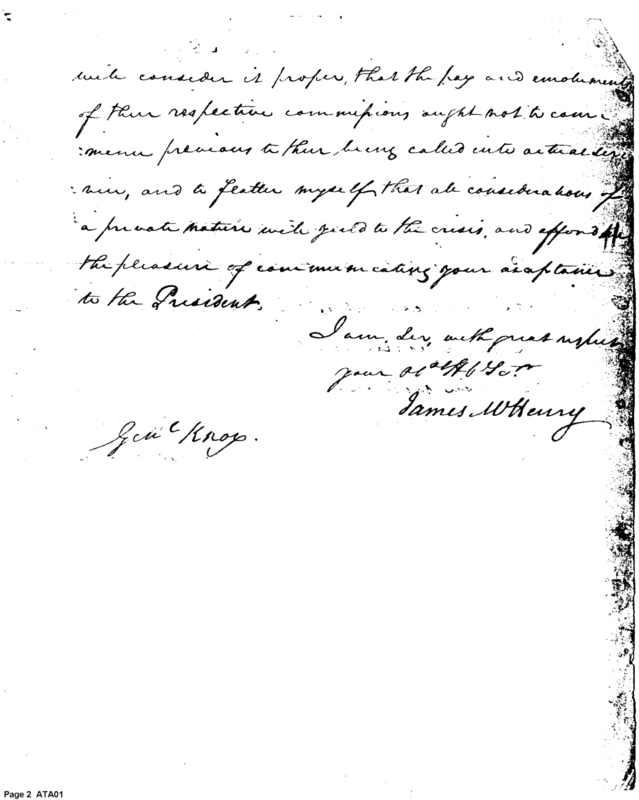 will consider it proper, that the pay and emoluments
of their respective commissions ought not to com-
:mence previous to their being called into actual ser
:vice, and to flatter myself that all considerations of
a private nature will yield to the crisis, and afford me
the pleasure of communicating your acceptance
to the President.
I am, Sir, with great respect
your
James McHenry
Genl Knox.
Page 2 ATA01